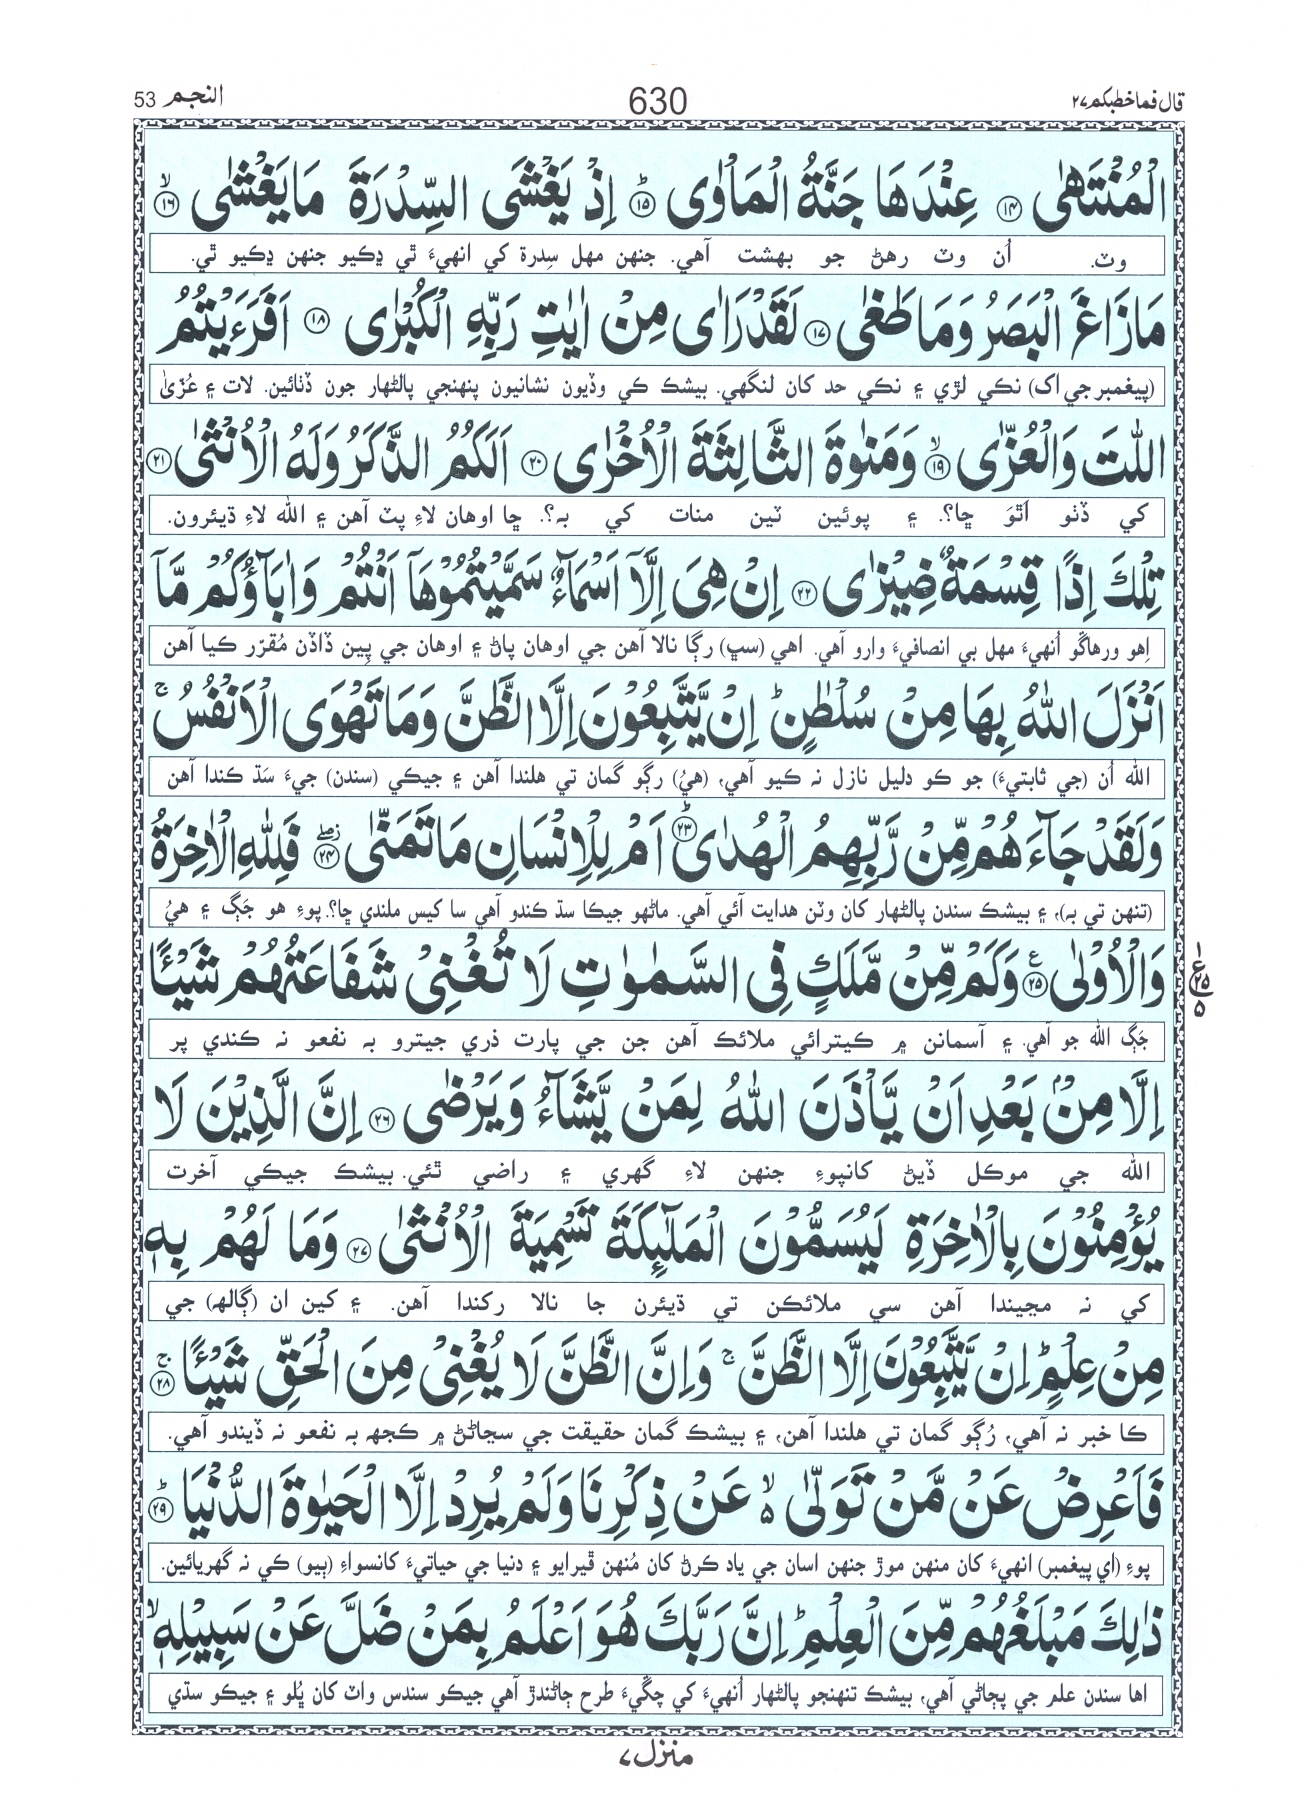 قال فما خطبكم ٢٧
630
النجم 53
الْمُنْتَهٰى ﴿۱۴﴾ عِنْدَهَا جَنَّةُ الْمَاْوٰى ؕ﴿۱۵﴾ اِذْ يَغْشَى السِّدْرَةَ مَا يَغْشٰى ۙ﴿۱۶﴾
وٽ. اُن وٽ رهڻ جو بهشت آهي. جنهن مهل سِدرة کي انهيءَ ٿي ڍڪيو جنهن ڍڪيو ٿي.
مَا زَاغَ الْبَصَرُ وَمَا طَغٰى ﴿۱۷﴾ لَقَدْ رَاٰى مِنْ اٰيٰتِ رَبِّهِ الْكُبْرٰى ﴿۱۸﴾ اَفَرَءَيْتُمُ
(پيغمبر جي اک) نڪي لڙي ۽ نڪي حد کان لنگهي. بيشڪ کي وڏيون نشانيون پنهنجي پالڻهار جون ڏٺائين. لات ۽ عُزّىٰ
اللّٰتَ وَالْعُزّٰى ۙ﴿۱۹﴾ وَمَنٰوةَ الثَّالِثَةَ الْاُخْرٰى ﴿۲۰﴾ اَلَكُمُ الذَّكَرُ وَلَهُ الْاُنْثٰى ﴿۲۱﴾
کي ڏٺو اَٿوَ ڇا؟. ۽ پوئين ٽين منات کي به؟. ڇا اوهان لاءِ پٽ آهن ۽ الله لاءِ ڌيئرون.
تِلْكَ اِذًا قِسْمَةٌ ضِيْزٰى ﴿۲۲﴾ اِنْ هِىَ اِلَّاۤ اَسْمَآءٌ سَمَّيْتُمُوْهَاۤ اَنْتُمْ وَاٰبَآؤُكُمْ مَّاۤ
اِهو ورهاڱو اُنهيءَ مهل بي انصافيءَ وارو آهي. اهي (سڀ) رڳا نالا آهن جي اوهان پاڻ ۽ اوهان جي پِين ڏاڏن مُقرّر ڪيا آهن
اَنْزَلَ اللّٰهُ بِهَا مِنْ سُلْطٰنٍ ؕ اِنْ يَّتَّبِعُوْنَ اِلَّا الظَّنَّ وَمَا تَهْوَى الْاَنْفُسُ ۚ
الله اُن (جي ثابتيءَ) جو ڪو دليل نازل نه ڪيو آهي، (هيُ) رڳو گمان تي هلندا آهن ۽ جيڪي (سندن) جيءَ سَڌ ڪندا آهن
وَلَقَدْ جَآءَهُمْ مِّنْ رَّبِّهِمُ الْهُدٰى ؕ﴿۲۳﴾ اَمْ لِلْاِنْسَانِ مَا تَمَنّٰى ﴿۲۴﴾ فَلِلّٰهِ الْاٰخِرَةُ
(تنهن تي به)، ۽ بيشڪ سندن پالڻهار کان وٽن هدايت آئي آهي. ماڻهو جيڪا سڌ ڪندو آهي سا کيس ملندي ڇا؟. پوءِ هو جَڳ ۽ هيُ
وَالْاُوْلٰى ﴿۲۵﴾ وَكَمْ مِّنْ مَّلَكٍ فِى السَّمٰوٰتِ لَا تُغْنِىْ شَفَاعَتُهُمْ شَيْـًٔا
جَڳ الله جو آهي. ۽ آسمانن ۾ ڪيترائي ملائڪ آهن جن جي پارت ذري جيترو به نفعو نه ڪندي پر
اِلَّا مِنْۢ بَعْدِ اَنْ يَّاْذَنَ اللّٰهُ لِمَنْ يَّشَآءُ وَيَرْضٰى ﴿۲۶﴾ اِنَّ الَّذِيْنَ لَا
الله جي موڪل ڏيڻ کانپوءِ جنهن لاءِ گهري ۽ راضي ٿئي. بيشڪ جيڪي آخرت
يُؤْمِنُوْنَ بِالْاٰخِرَةِ لَيُسَمُّوْنَ الْمَلٰٓئِكَةَ تَسْمِيَةَ الْاُنْثٰى ﴿۲۷﴾ وَمَا لَهُمْ بِهٖ
کي نه مڃيندا آهن سي ملائڪن تي ڌيئرن جا نالا رکندا آهن. ۽ کين ان (ڳالھ) جي
مِنْ عِلْمٍ ؕ اِنْ يَّتَّبِعُوْنَ اِلَّا الظَّنَّ ۚ وَاِنَّ الظَّنَّ لَا يُغْنِىْ مِنَ الْحَقِّ شَيْـًٔا ۚ﴿۲۸﴾
ڪا خبر نه آهي، رُڳو گمان تي هلندا آهن، ۽ بيشڪ گمان حقيقت جي سڃاڻڻ ۾ ڪجھ به نفعو نه ڏيندو آهي.
فَاَعْرِضْ عَنْ مَّنْ تَوَلّٰى ۙ۬ عَنْ ذِكْرِنَا وَلَمْ يُرِدْ اِلَّا الْحَيٰوةَ الدُّنْيَا ؕ﴿۲۹﴾
پوءِ (اي پيغمبر) انهيءَ کان منهن موڙ جنهن اسان جي ياد ڪرڻ کان مُنهن ڦيرايو ۽ دنيا جي حياتيءَ کانسواءِ (ٻيو) ڪي نه گهريائين.
ذٰلِكَ مَبْلَغُهُمْ مِّنَ الْعِلْمِ ؕ اِنَّ رَبَّكَ هُوَ اَعْلَمُ بِمَنْ ضَلَّ عَنْ سَبِيْلِهٖ ۙ
اها سندن علم جي پڄاڻي آهي، بيشڪ تنهنجو پالڻهار اُنهيءَ کي چڱيءَ طرح ڄاڻندڙ آهي جيڪو سندس واٽ کان ڀُلو ۽ جيڪو سڌي
منزل ٧